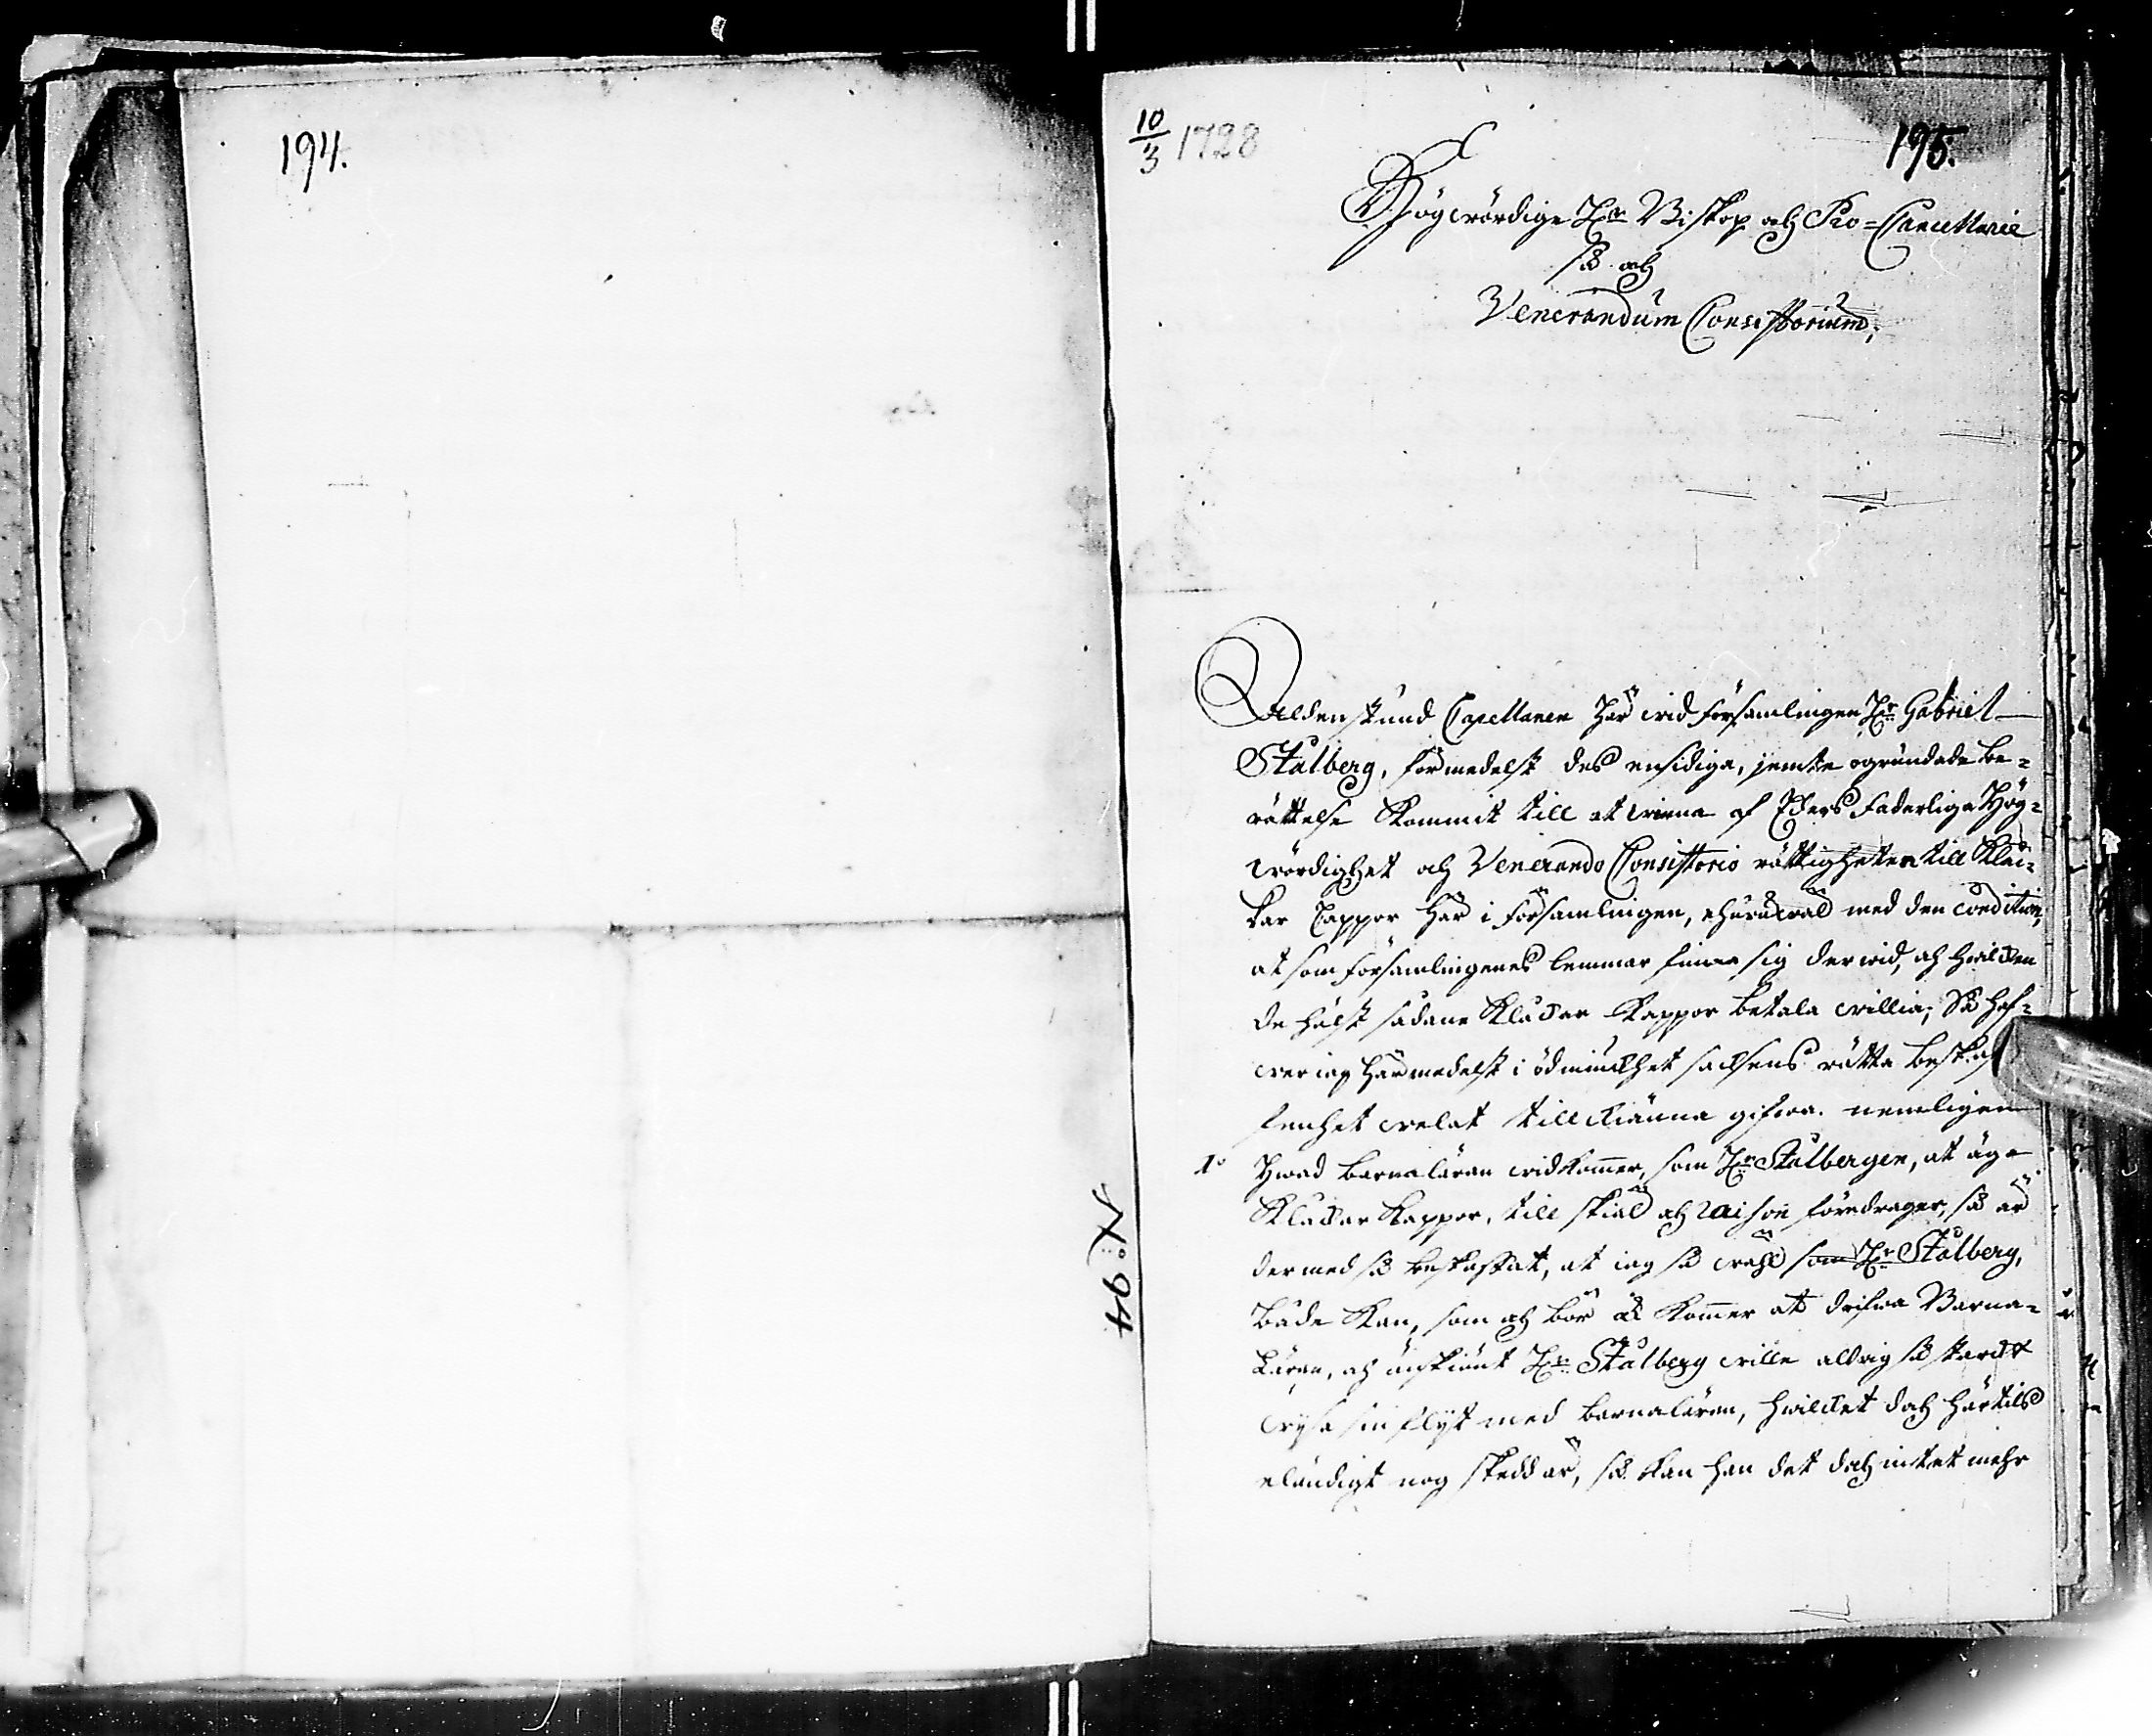 194.
N:o 94
10/3 1728
195.
Högwördige Hr Biskop och Pro-Cancellarie
så och
Venerandum Consistorium,
Aldenstund Capellanen här wid Församlingen Hr Gabriel
Stålberg, förmedelst des ensidiga, jemte ogrundade be-
rättelse kommit till at winna af Eders Faderliga Hög-
wördighet och Venerando Consistorio rättigheten till Kloc-
kar Cappor här i Församlingen, ehuruwäl med den condition,
at som Församlingenes lemmar finna sig derwid, och hwilken
de hälst sådane Klåckar Kappor betala willia; Så haf-
wer iag härmedelst i ödmiukhet saksens rätta beskaf
fenhet welat till kiänna gifwa. nemligen
1o Hwad barnaläran widkommer, som Hr Stålbergen, at äga
Klåckar Kappor, till skiäl och raison föredrager, så är
dermed så beskaffat, at iag så wähl som Hr Stålberg,
både kan, som och bör och kommer at drifwa Barna-
Läran, och änskiönt Hr Stålberg wille aldrig så starckt
wysa sin flyt med barnaläran, hwilket doch härtils
eländigt nog skedd är, så kan han det doch intet mehr